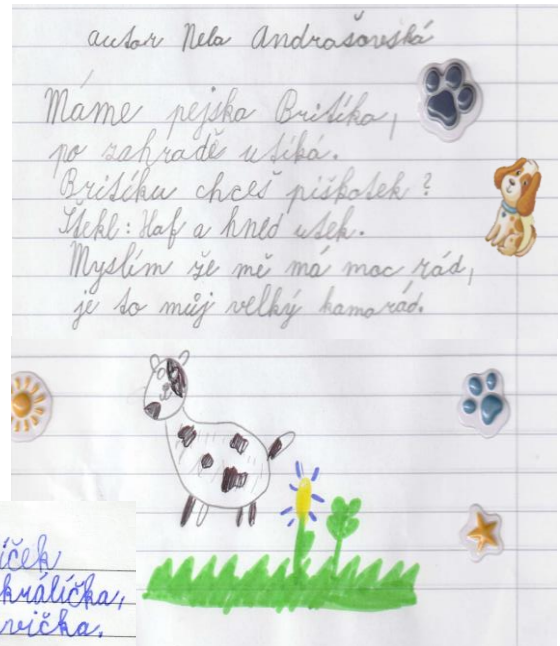 autor Nela Andrašovská
Máme pejska Britíka,
po zahradě utíká.
Britíku chceš piškotek?
Štekl: Haf a hned utek.
Myslím že mě má moc rád,
je to můj velký kamarád.
íček
králíčka,
vička.